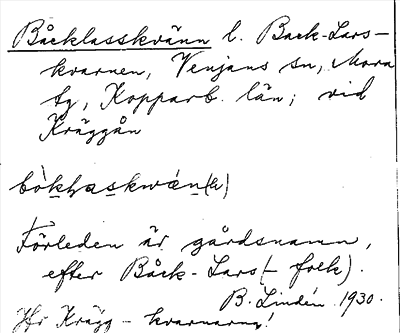 Båcklasskvänn l. Back-Lars-
kvarnen, Venjans sn, Mora
tg, Kopparb. län; vid
Kräggån
Förleden är gårdsnamn,
efter Båck-Lars (- folk).
B. Lindén 1930.
Jfr Krägg - kvarnarna!